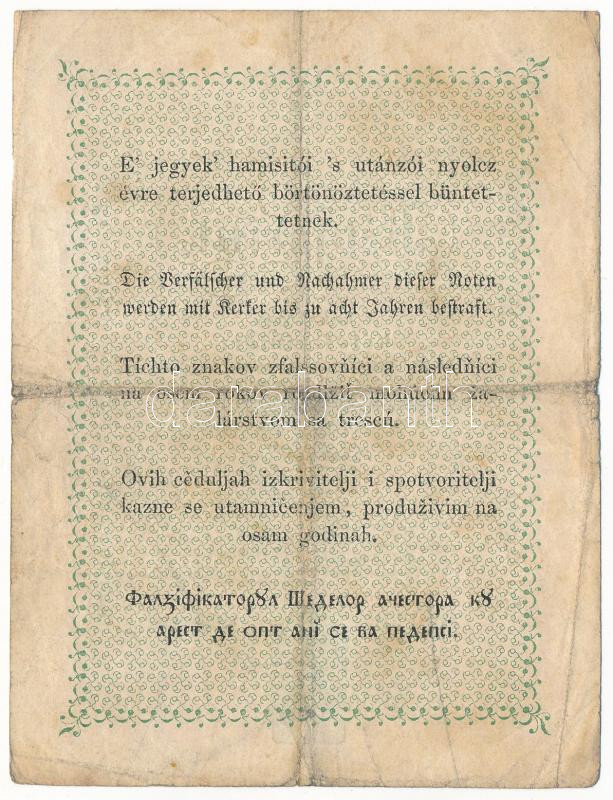 E' jegyek' hamisitói 's utánzói nyolcz
évre terjedhető börtönöztetéssel büntet-
tetnek.
Die Verfälscher und Nachahmer dieser Noten
werden mit Kerker bis zu acht Jahren bestraft.
Tíchto znakov zfalšovňíci a následňíci
na osem rokov
žalárstvom sa trescú.
Ovih cěduljah izkrivitelji i spotvoritelji
kazne se utamničenjem, produživim na
osam godinah.
Фалзіфікаторꙋл Шеделор ачестора кꙋ
арест де опт ані се ва педепсі.
databanth